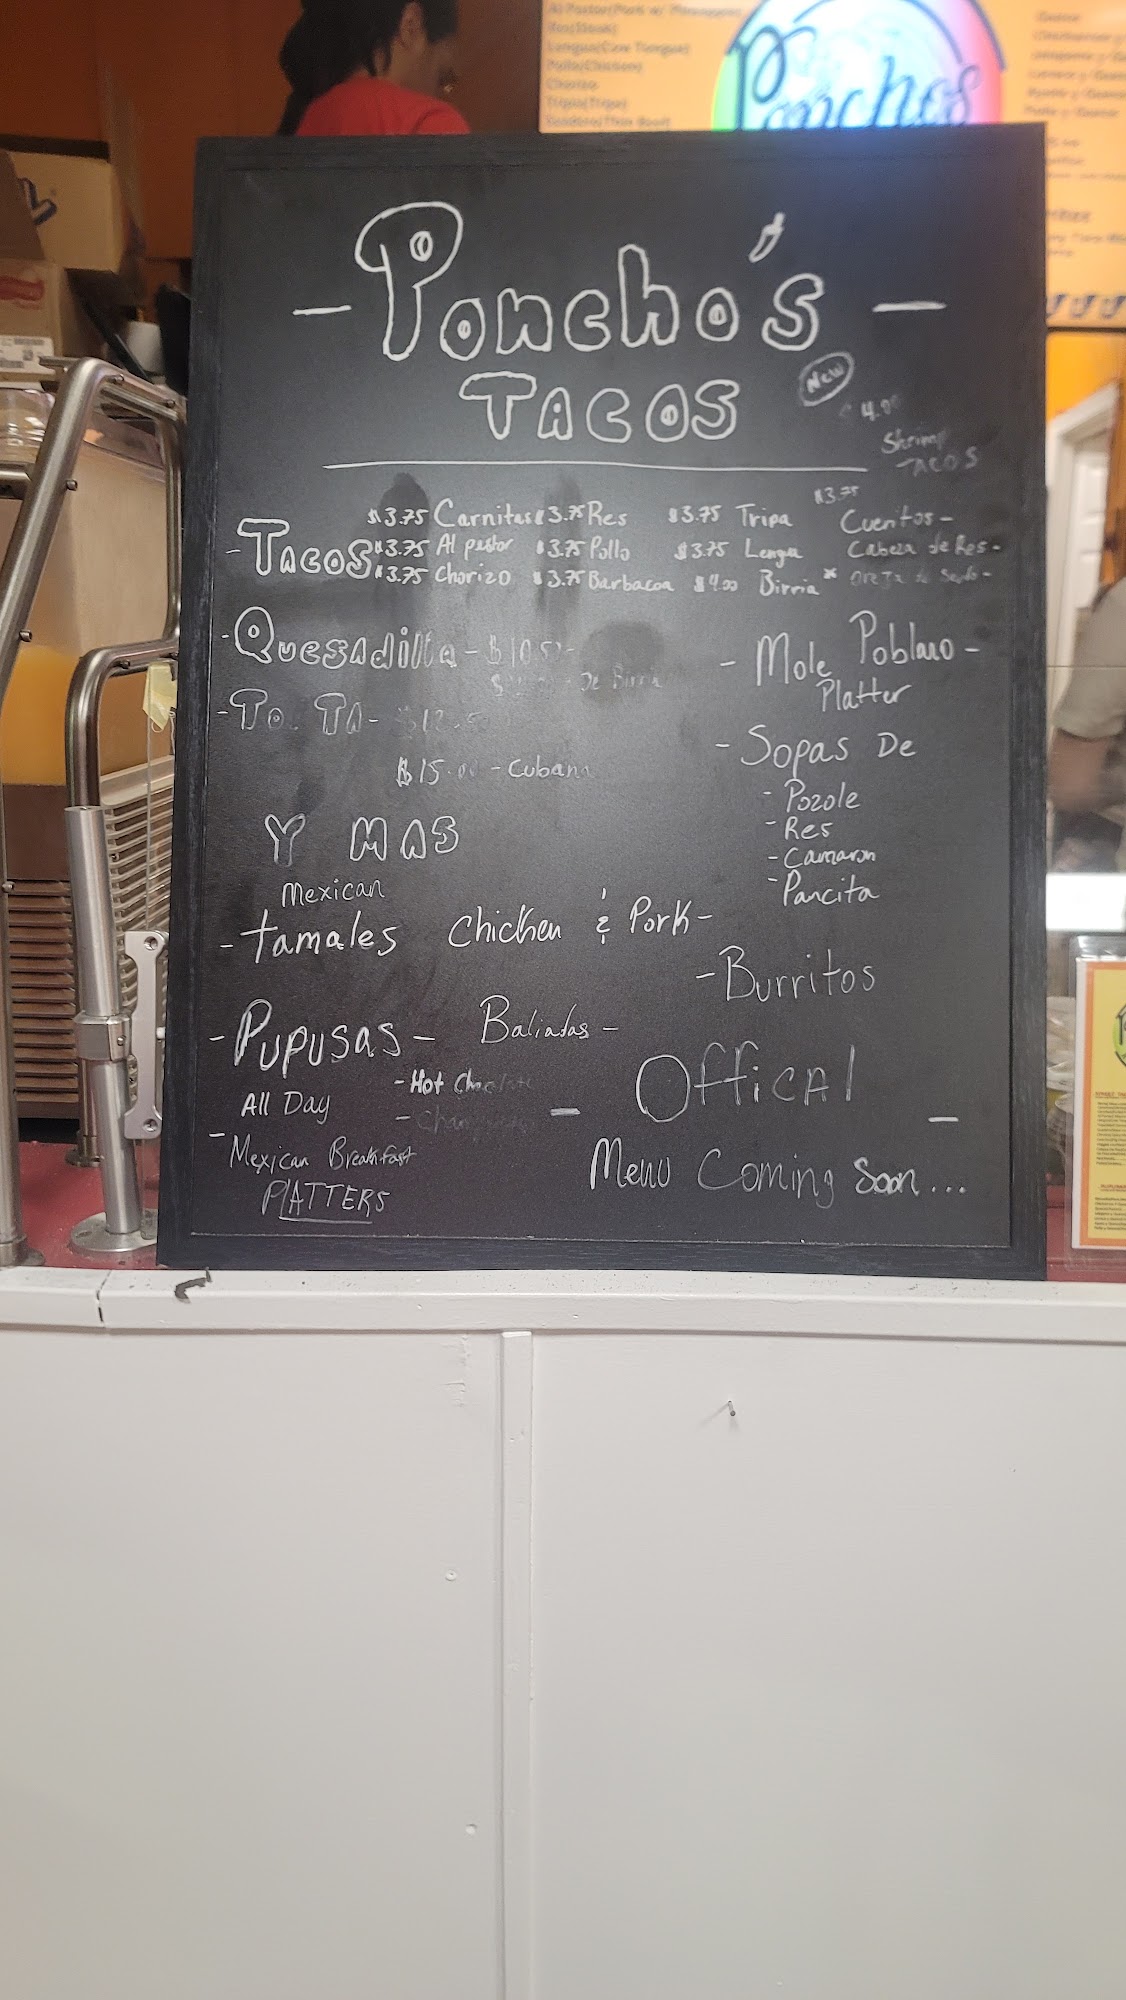 Al Pastor(Pork w/ Pineapple)
Res(Steak)
Lengua(Cow Tongue)
Pollo(Chicken)
Chorizo
Tripa(Tripe)
Ponchos
Poncho's
TACOS
New
4.00
Shrimp
TACOS
- TACOS
$3.75 Carnitas $3.75 Res $3.75 Tripa $3.75 Cueritos -
$3.75 Al pastor $3.75 Pollo $3.75 Lengua Cabeza de Res -
$3.75 Chorizo $3.75 Barbacoa $4.00 Birria * oreja de
- Quesadilla - $10.50 -
De Birria
- To TA - $12.5
$15.00 - Cubana
- Mole Poblano -
Platter
- Sopas De
- Pozole
- Res
- Camaron
- Pancita
Y MAS
Mexican
- tamales Chicken & Pork -
- Burritos
- Pupusas - Baliadas -
All Day
- Hot Chocolate
- Mexican Breakfast
PLATTERS
- Offical -
Menu Coming Soon...